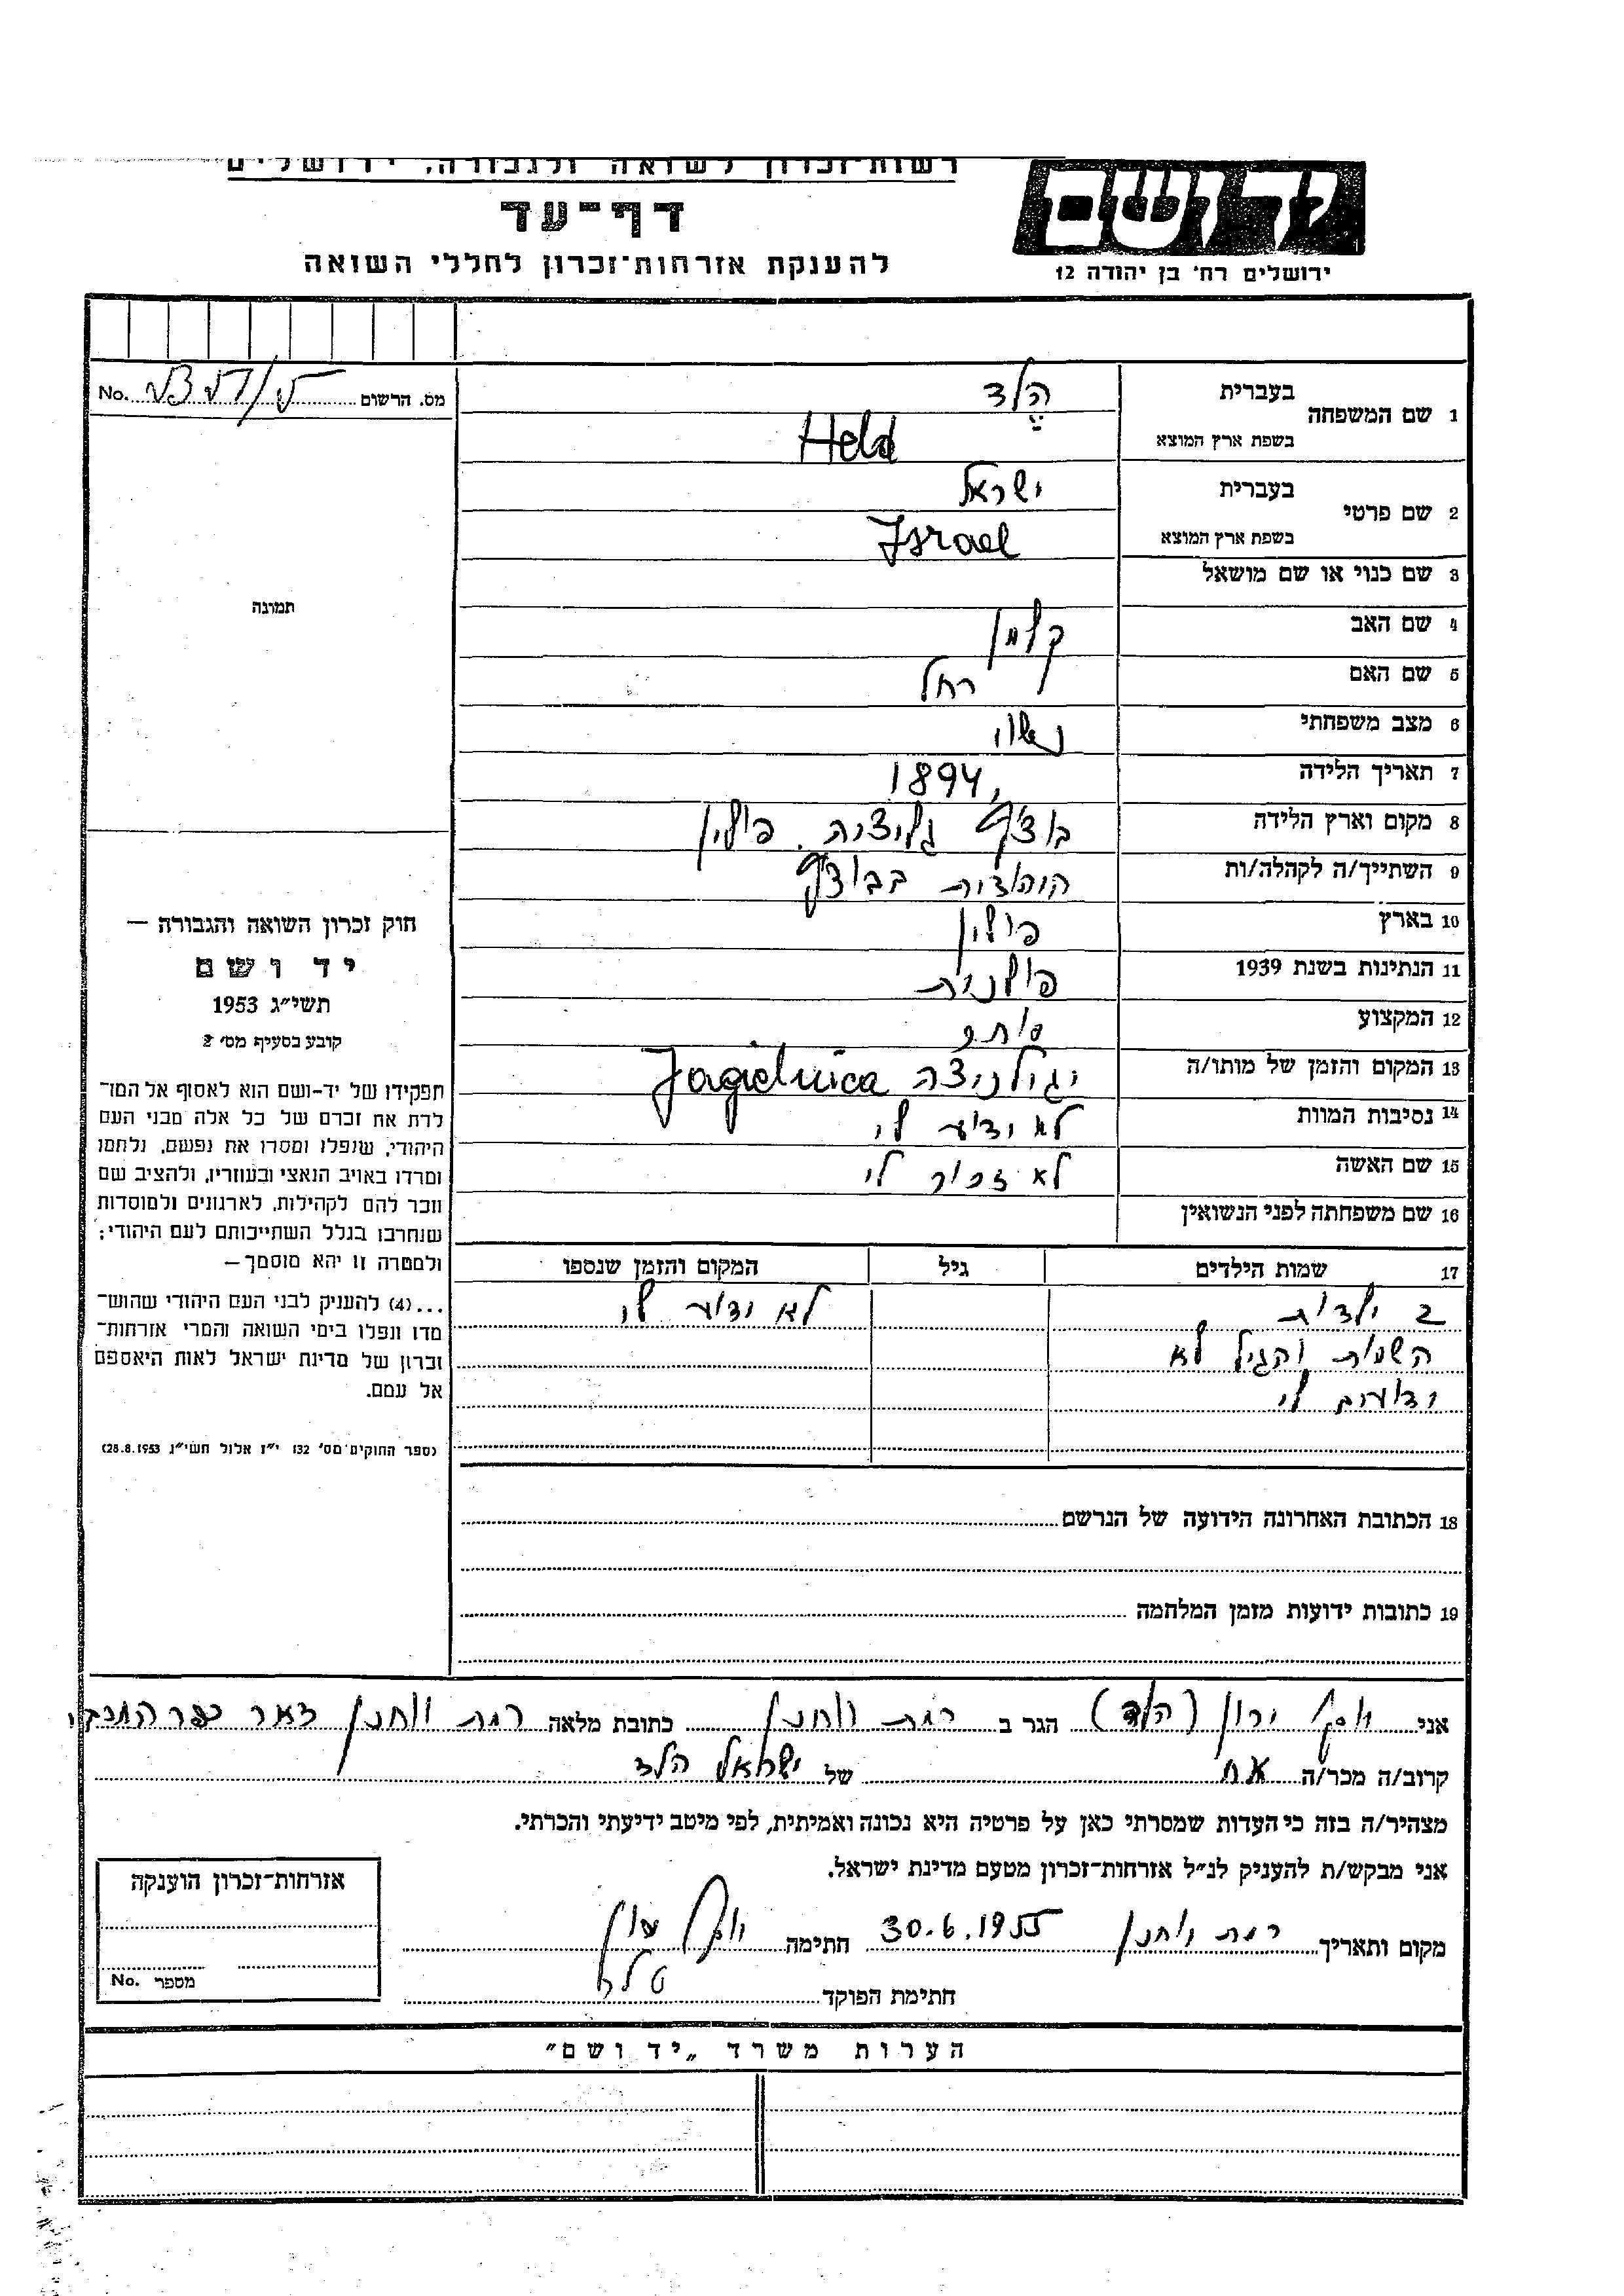 רשות־זכרון לשואה ולגבורה, ירושלים
יד ושם
דף־עד
להענקת אזרחות־זכרון לחללי השואה
ירושלים רח׳ בן יהודה 12
מס. הרשום No.
1 שם המשפחה בעברית הלד
בשפת ארץ המוצא Held
2 שם פרטי בעברית ישראל
בשפת ארץ המוצא Israel
3 שם כנוי או שם מושאל
4 שם האב קלמן
5 שם האם רחל
6 מצב משפחתי נשוי
7 תאריך הלידה 1894
8 מקום וארץ הלידה בוצ'ץ גליציה. פולין
9 השתייך/ה לקהלה/ות בבוצ'ץ
10 בארץ פולין
11 הנתינות בשנת 1939 פולנית
12 המקצוע סוחר
13 המקום והזמן של מותו/ה יגילניצה Jagielnica
14 נסיבות המוות לא ידוע לי
15 שם האשה לא זכור לי
16 שם משפחתה לפני הנשואין
17 שמות הילדים גיל המקום והזמן שנספו
2 ילדות לא ידוע לי
השמות והגיל לא
ידועים לי
18 הכתובת האחרונה הידועה של הנרשם
19 כתובות ידועות מזמן המלחמה
תמונה
חוק זכרון השואה והגבורה —
יד ושם
תשי״ג 1953
קובע בסעיף מס׳ 2
תפקידו של יד-ושם הוא לאסוף אל המו־
לדת את זכרם של כל אלה מבני העם
היהודי, שנפלו ומסרו את נפשם, נלחמו
ומרדו באויב הנאצי ובעוזריו, ולהציב שם
וזכר להם לקהילות, לארגונים ולמוסדות
שנחרבו בגלל השתייכותם לעם היהודי;
ולמטרה זו יהא מוסמך —
...(4) להעניק לבני העם היהודי שהוש־
מדו ונפלו בימי השואה והמרי אזרחות־
זכרון של מדינת ישראל לאות היאספם
אל עמם.
(ספר החוקים מס׳ 132 י״ז אלול תשי״ג 28.8.1953)
אני ירון (הלד) הגר ב רמת יוחנן כתובת מלאה רמת יוחנן דאר כפר המכבי
קרוב/ה מכר/ה אח של ישראל הלד
מצהיר/ה בזה כי העדות שמסרתי כאן על פרטיה היא נכונה ואמיתית, לפי מיטב ידיעתי והכרתי.
אני מבקש/ת להעניק לנ״ל אזרחות־זכרון מטעם מדינת ישראל.
מקום ותאריך רמת יוחנן 30.6.1955 חתימה
חתימת הפוקד
אזרחות־זכרון הוענקה
מספר No.
הערות משרד „יד ושם״